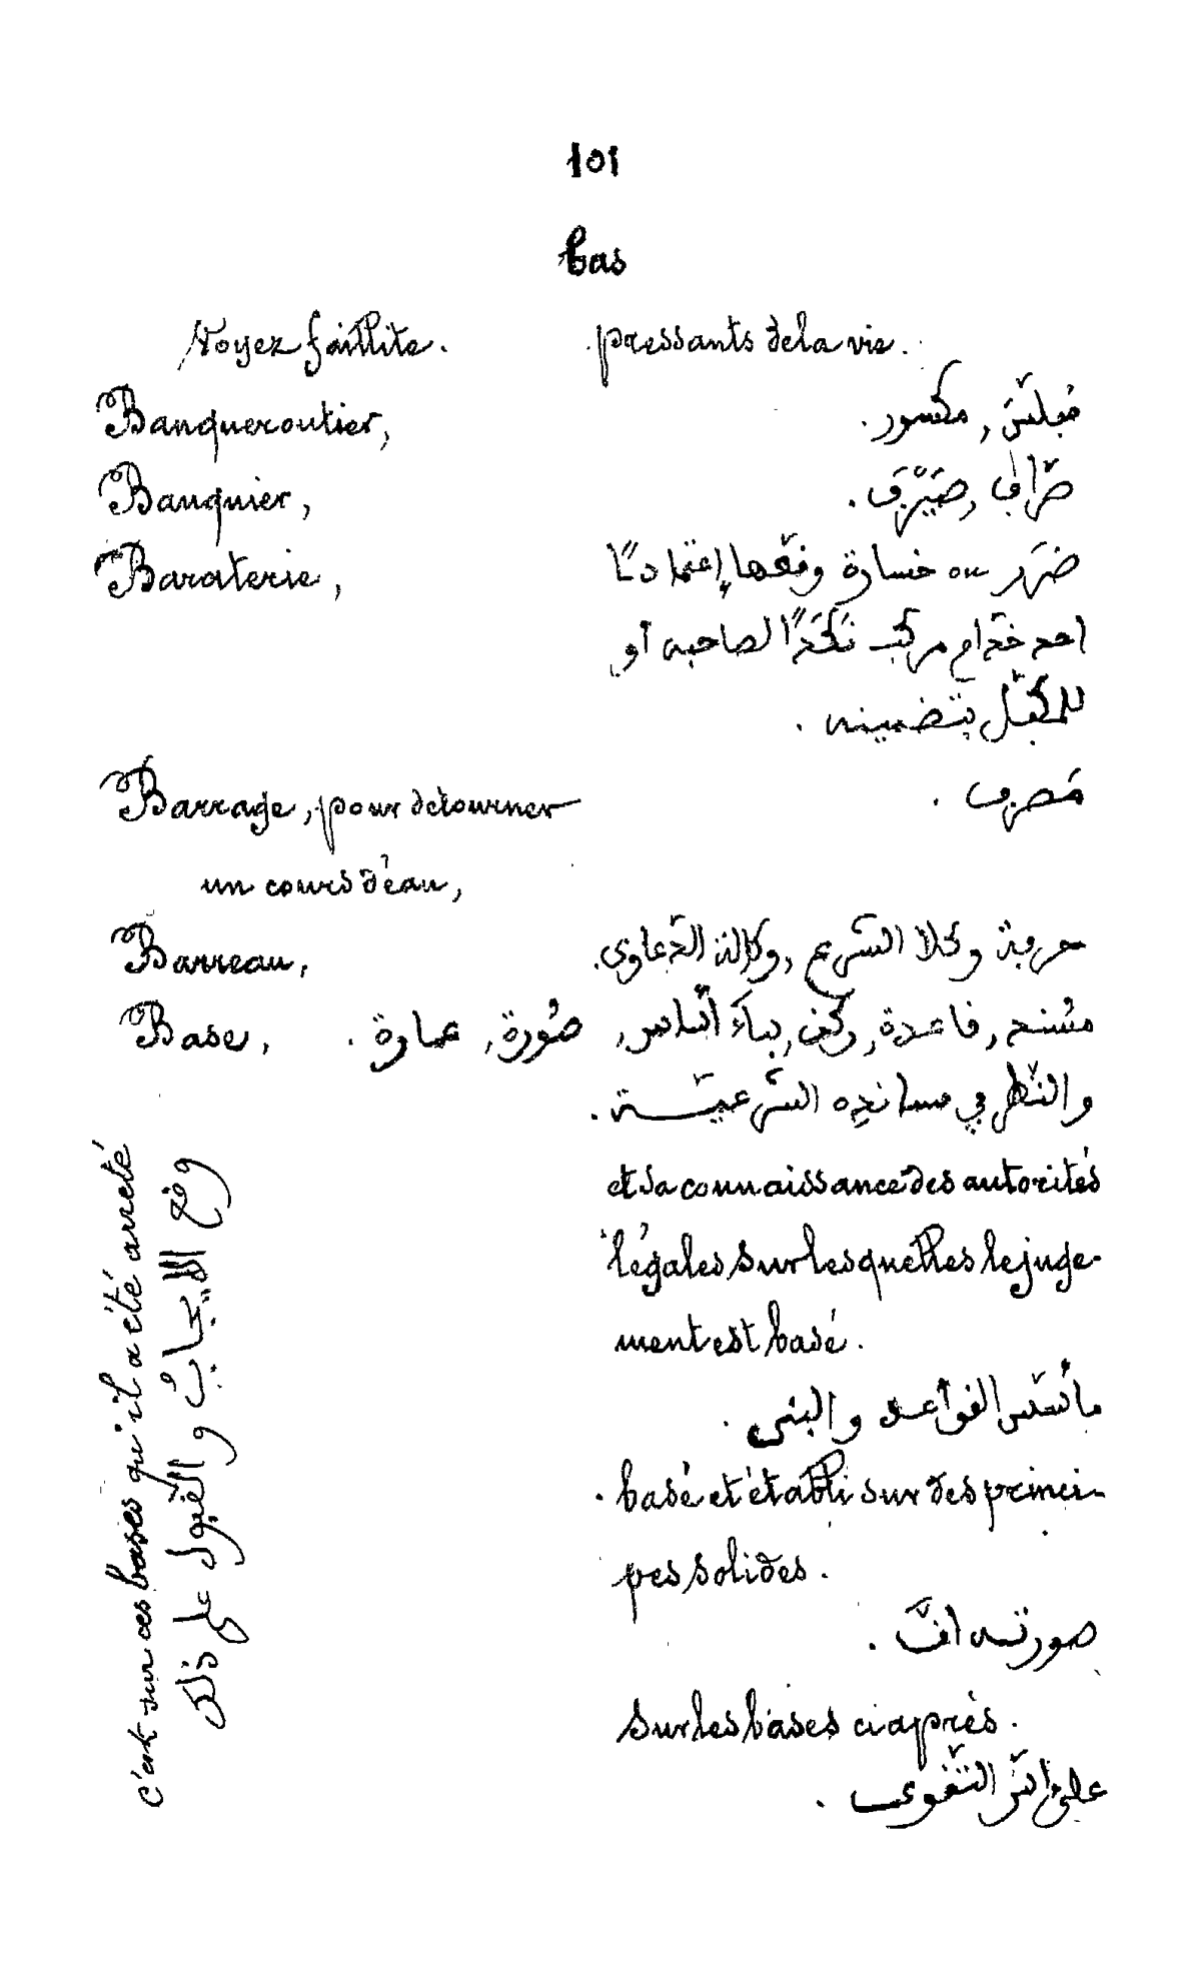 101
bas
Voyez faillite.
pressants de la vie.
Banqueroutier, مُفلّس, مكسور.
Banquier, صرّاف, صَيْرَفي.
Baraterie, ضرَر ou خسارة وقعها إعتمادًا
احد خدّام مركب نَكَدًا لصاحبه أو
للمكفّل بتضمينه.
Barrage, pour detourner مَصرف.
un cours d'eau,
Barreau, حرفة وكلا الشرع, وكالة الدّعاوى.
Base, مسْند, قاعدة, ركن, بناءَ أساس, صُورة, عمارة.
والنّظر في مسانده الشّرعيّة.
et sa connaissance des autorités
légales sur lesquelles le juge-
ment est basé.
مأسّس القواعد والبنى.
basé et établi sur des princi-
pes solides.
صورته
sur les bases ci après.
على التّقوى.
C'est sur ces bases qu'il a été arreté
وقع الايجابُ والقبول على ذلك